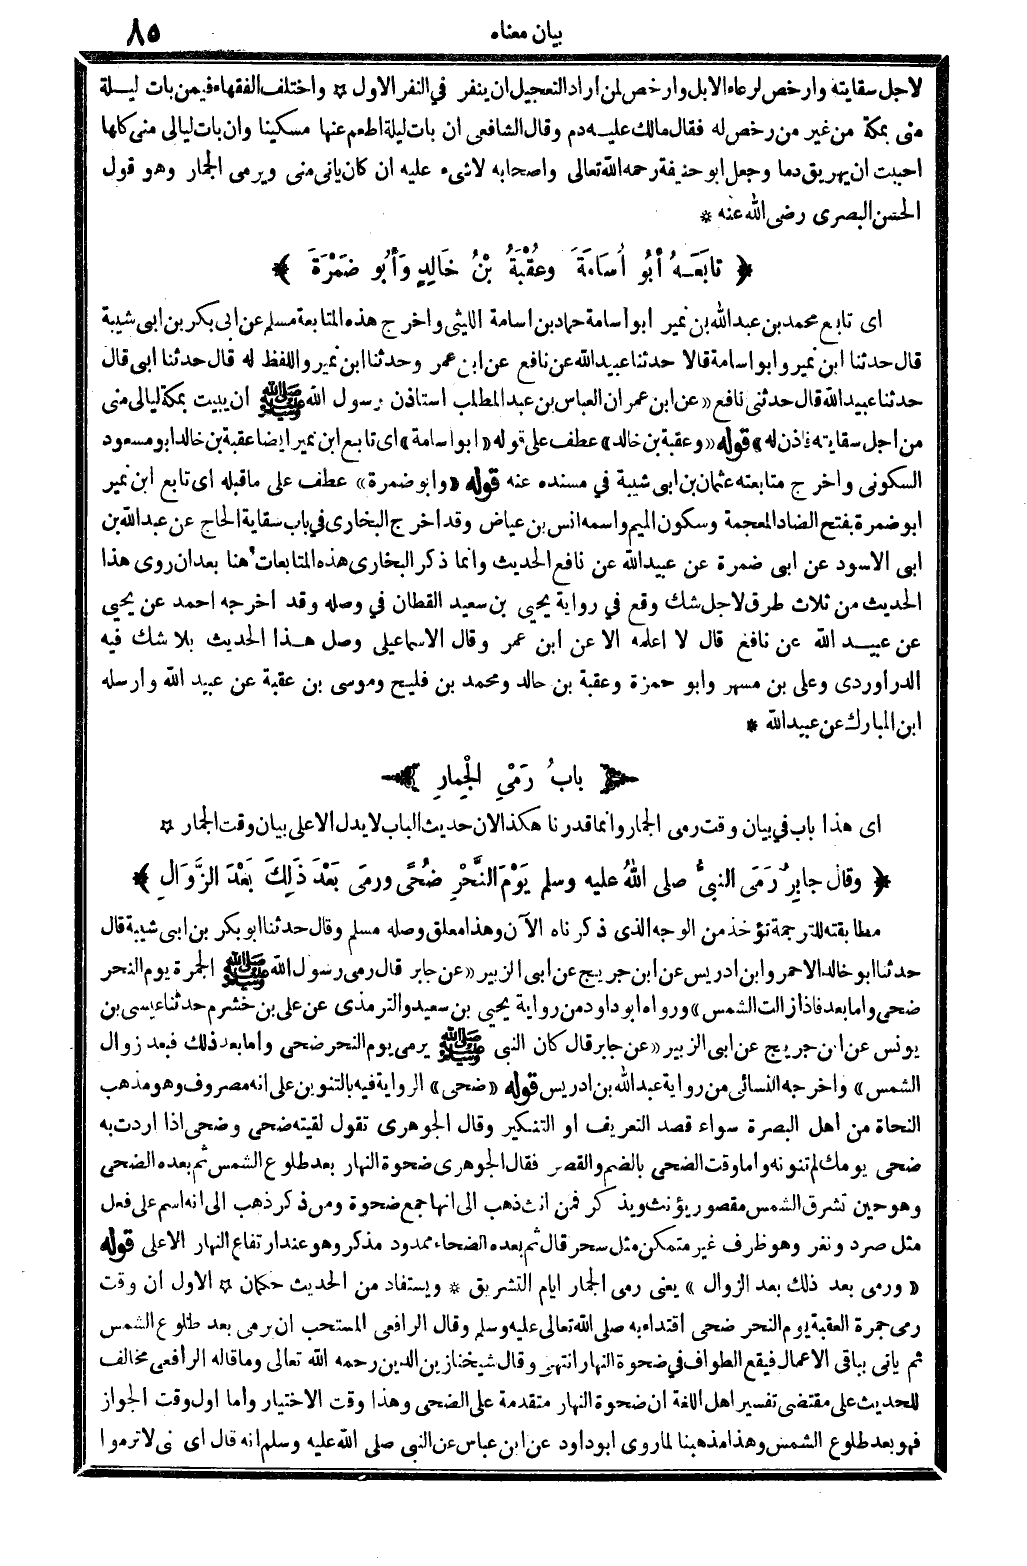 بيان معناه ٨٥
لاجل سقايته وارخص لرعاء الابل وارخص لمن أراد التعجيل ان ينفر في النفر الاول ✩ واختلف الفقهاء فيمن بات ليلة
منى بمكة من غير من رخص له فقال مالك عليه دم وقال الشافعي ان بات ليلة اطعم عنها مسكينا وان بات ليالى منى كلها
احببت ان يهريق دما وجعل ابو حنيفة رحمه الله تعالى واصحابه لاشىء عليه ان كان يأتى منى ويرمى الجمار وهو قول
الحسن البصرى رضى الله عنه *
﴿ تابَعَهُ أبُو أُسَامَةَ وعُقْبَةُ بْنُ خَالِدٍ وَأبُو ضَمْرَةَ ﴾
اى تابع محمد بن عبد الله بن نمير ابو أسامة حماد بن اسامة الليثى واخرج هذه المتابعة مسلم عن ابى بكر بن ابى شيبة
قال حدثنا ابن نمير وابو اسامة قالا حدثنا عبيد الله عن نافع عن ابن عمر وحدثنا ابن نمير واللفظ له قال حدثنا ابى قال
حدثنا عبيد الله قال حدثنى نافع «عن ابن عمر ان العباس بن عبد المطلب استاذن رسول الله ﷺ أن يبيت بمكة ليالى منى
من اجل سقايته فاذن له» قوله «وعقبة بن خالد» عطف على قوله «ابو اسامة» اى تابع ابن نمير ايضا عقبة بن خالد ابو مسعود
السكونى واخرج متابعته عثمان بن ابى شيبة في مسنده عنه قوله «وابو ضمرة» عطف على ماقبله اى تابع ابن نمير
ابو ضمرة بفتح الضاد المعجمة وسكون الميم واسمه انس بن عياض وقد اخرج البخارى في باب سقاية الحاج عن عبد الله بن
ابى الاسود عن ابى ضمرة عن عبيد الله عن نافع الحديث وانما ذكر البخارى هذه المتابعات هنا بعد ان روى هذا
الحديث من ثلاث طرق لاجل شك وقع في رواية يحيى بن سعيد القطان في وصله وقد أخرجه احمد عن يحيى
عن عبيد الله عن نافع قال لا اعلمه الا عن ابن عمر وقال الاسماعيلى وصل هذا الحديث بلا شك فيه
الدراوردى وعلى بن مسهر وابو حمزة وعقبة بن خالد ومحمد بن فليح وموسى بن عقبة عن عبيد الله وارسله
ابن المبارك عن عبيد الله *
﴿ بابُ رَمْىِ الْجِمارِ ﴾
اى هذا باب في بيان وقت رمى الجمار وانما قدرنا هكذا لان حديث الباب لا يدل الا على بيان وقت الجمار ✩
﴿ وقال جابِرٌ رَمَى النبىُّ صلى اللهُ عليه وسلم يَوْمَ النَّحْرِ ضُحًى ورمَى بَعْدَ ذَلِكَ بَعْدَ الزَّوَالِ ﴾
مطابقته للترجمة تؤخذ من الوجه الذى ذكرناه الآن وهذا معلق وصله مسلم وقال حدثنا ابو بكر بن ابى شيبة قال
حدثنا ابو خالد الاحمر وابن ادريس عن ابن جريج عن ابى الزبير «عن جابر قال رمى رسول الله ﷺ الجمرة يوم النحر
ضحى واما بعد فاذا زالت الشمس» ورواه ابو داود من رواية يحيى بن سعيد والترمذى عن على بن خشرم حدثنا عيسى بن
يونس عن ابن جريج عن ابى الزبير «عن جابر قال كان النبى ﷺ يرمى يوم النحر ضحى وأما بعد ذلك فبعد زوال
الشمس» واخرجه النسائى من رواية عبد الله بن ادريس قوله «ضحى» الرواية فيه بالتنوين على انه مصروف وهو مذهب
النحاة من أهل البصرة سواء قصد التعريف او التنكير وقال الجوهرى تقول لقيته ضحى وضحى اذا اردت به
ضحى يومك لم تنونه واما وقت الضحى بالضم والقصر فقال الجوهرى ضحوة النهار بعد طلوع الشمس ثم بعده الضحى
وهو حين تشرق الشمس مقصور يؤنث ويذكر فمن انث ذهب الى انها جمع ضحوة ومن ذكر ذهب الى انه اسم على فعل
مثل صرد ونغر وهو ظرف غير متمكن مثل سحر قال ثم بعده الضحاء ممدود مذكر وهو عند ارتفاع النهار الاعلى قوله
«ورمى بعد ذلك بعد الزوال» يعنى رمى الجمار ايام التشريق * ويستفاد من الحديث حكمان ✩ الاول ان وقت
رمى جمرة العقبة يوم النحر ضحى أقتداء به صلى الله تعالى عليه وسلم وقال الرافعى المستحب ان يرمى بعد طلوع الشمس
ثم يأتى بباقى الاعمال فيقع الطواف في ضحوة النهار انتهى وقال شيخنا زين الدين رحمه الله تعالى وما قاله الرافعى مخالف
للحديث على مقتضى تفسير اهل اللغة ان ضحوة النهار متقدمة على الضحى وهذا وقت الاختيار وأما اول وقت الجواز
فهو بعد طلوع الشمس وهذا مذهبنا لما روى ابو داود عن ابن عباس عن النبى صلى الله عليه وسلم انه قال اى بنى لا ترموا